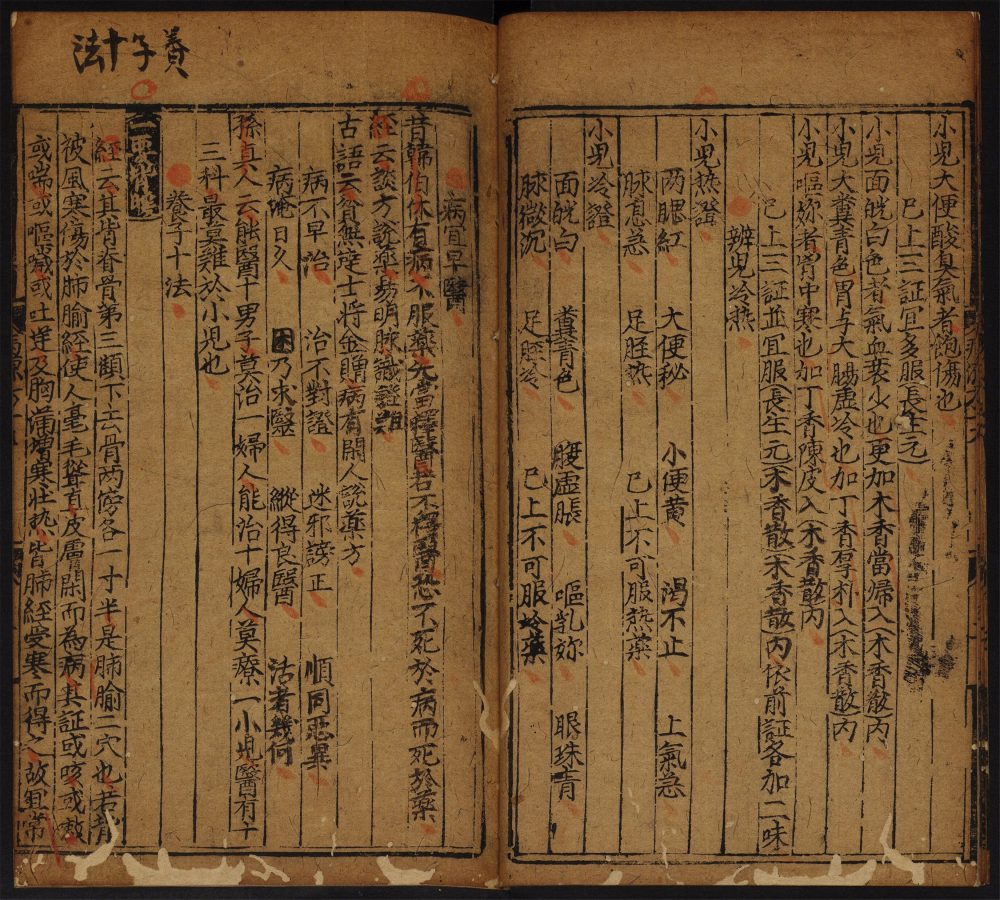 小兒大便酸臭氣者飽傷也
已上三証宜多服長生元
小兒面㿠白色者氣血衰少也更加木香當歸入木香散内
小兒大糞青色胃与大腸虛冷也加丁香厚朴入木香散内
小兒嘔妳者胃中寒也加丁香陳皮入木香散内
已上三証並宜服長生元木香散木香散内依前証各加二味
辨兒冷熱
小兒熱證
両腮紅 大便秘 小便黄 渴不止 上氣急
脉息急 足脛熱 已上不可服熱藥
小兒冷證
面㿠白 糞青色 腹虛脹 嘔乳妳 眼珠青
脉微沉 足脛冷 已上不可服冷藥
養子十法
病宜早醫
昔韓伯休有病不服藥先當擇醫若不擇醫恐不死於病而死於藥
經云談方說藥易明脉識證難
古語云貧無達士將金贈病有閑人說藥方
病不早治 治不對證 迷邪謗正 順同惡異
病淹日久 困乃求醫 縱得良醫 活者幾何
孫真人云能醫十男子莫治一婦人能治十婦人莫療一小兒醫有十
三科最莫難於小兒也
養子十法
一要背暖
經云其背脊骨第三顀下去骨兩傍各一寸半是肺腧二穴也若背
被風寒傷於肺腧經使人毫毛聳直皮膚閉而為病其証或咳或嗽
或喘或嘔噦或吐逆及胸滿增寒壮热皆肺經受寒而得之故宜常